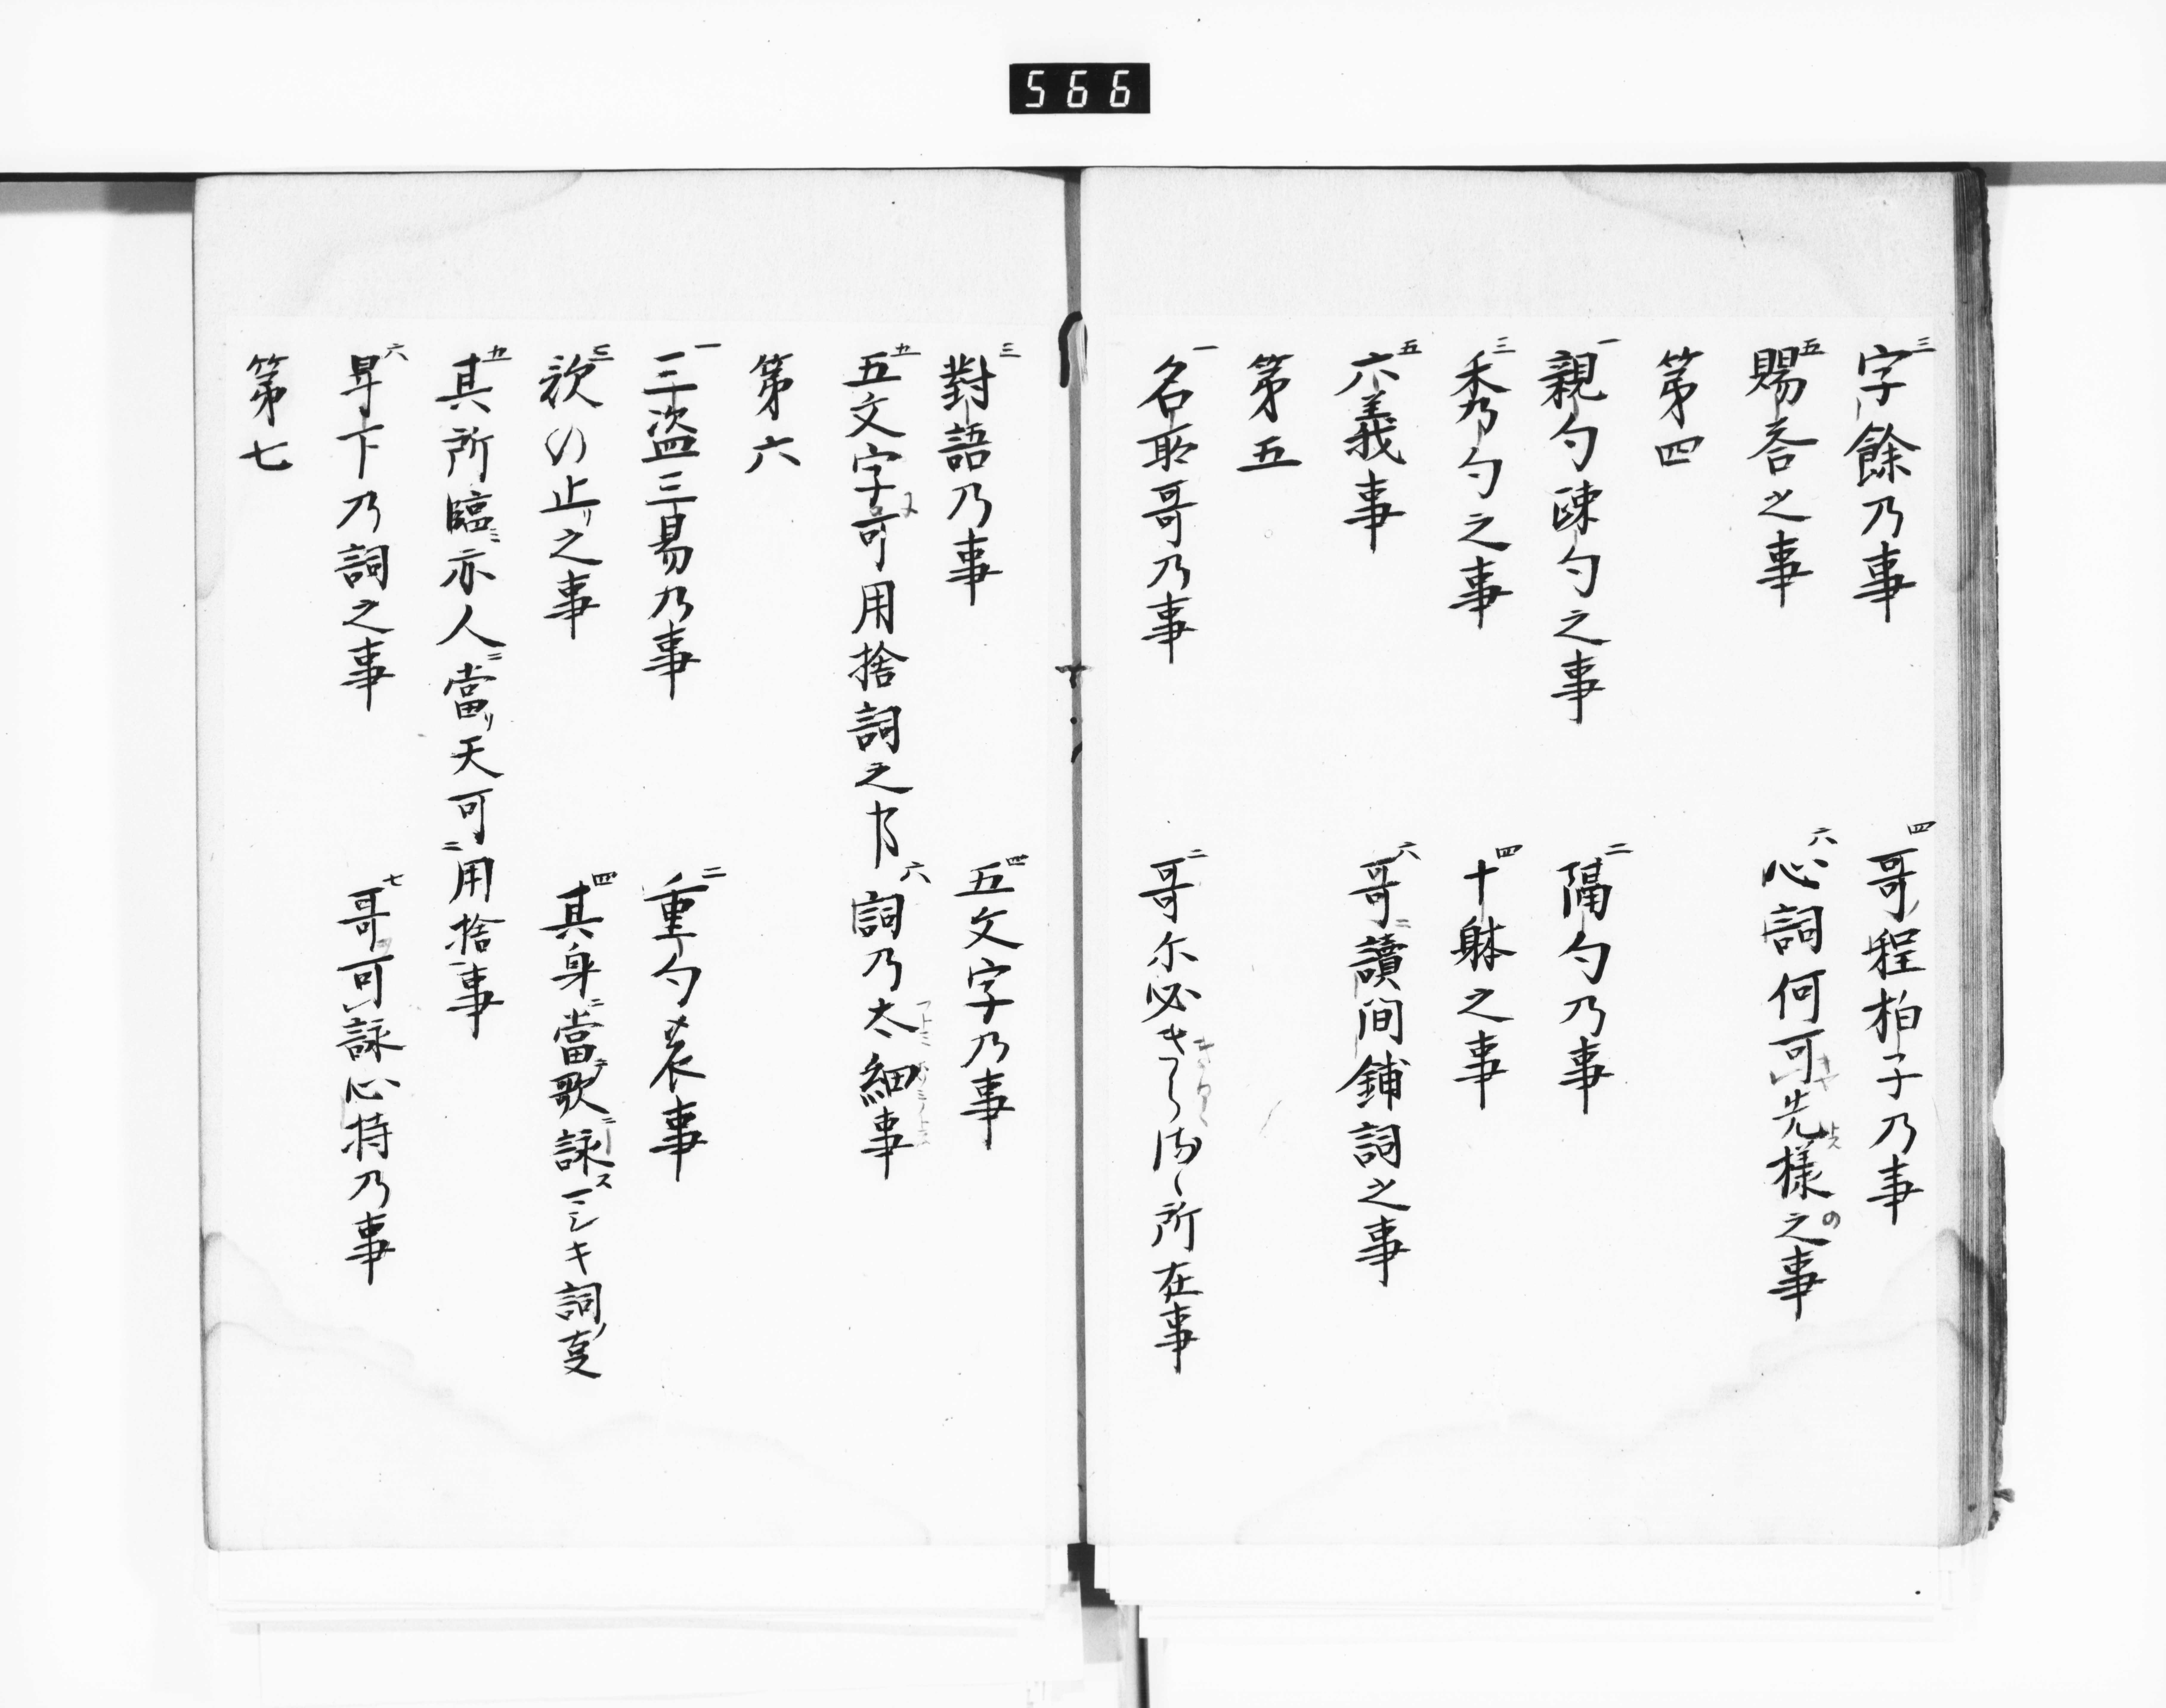 566
三字餘乃事　四哥程拍子乃事
五賜答之事　六心詞何可先様之事
第四
一親勺踈勺之事　二隔勺乃事
三秀乃勺之事　四十躰之事
五六義事　六哥ニ讀间鋪詞之事
第五
一名取哥乃事　二哥尓必所在事
三對語乃事　四五文字乃事
五五文字可用捨詞之事　六詞乃太細事
第六
一三盗三易乃事　二重勺事
三歌の止リ之事　四其身ニ當テ歌ニ詠スマシキ詞ノ叓
五其所臨ニ亦人ニ當リ天可ニ用捨事
六昇下乃詞之事　七哥可詠心持乃事
第七